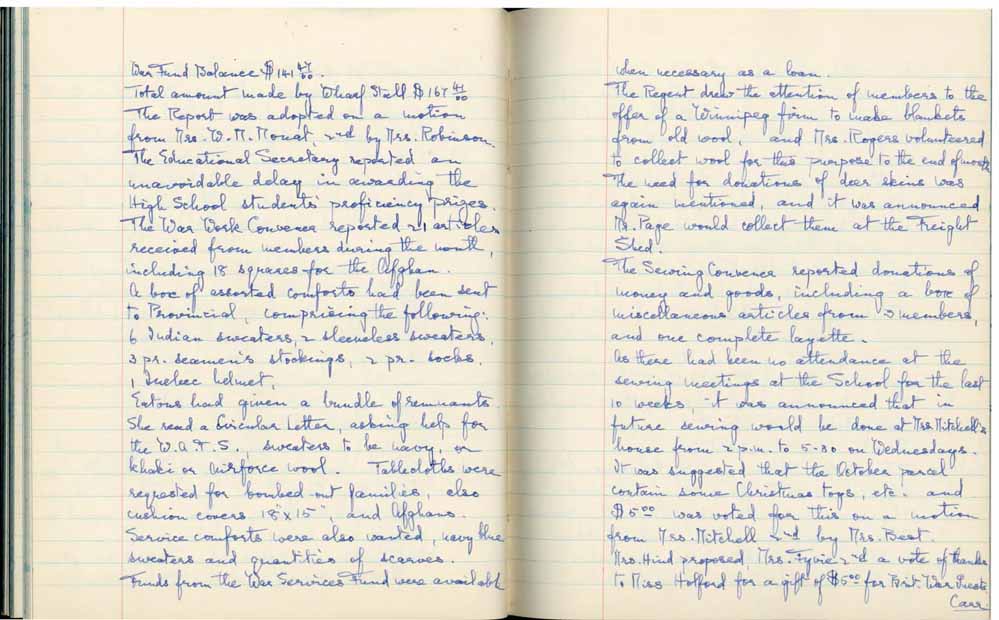 War Fund Balance $141 47/00.
Total amount made by Wharf Stall $167 41/00
The Report was adopted on a motion
from Mrs. W. M. Mouat, 2nd by Mrs. Robinson.
The Educational Secretary reported an
unavoidable delay in awarding the
High School students' proficiency prizes.
The War Work Convener reported 21 articles
received from members during the month,
including 18 squares for the Afghan.
A box of assorted comforts had been sent
to Provincial, comprising the following:.
6 Indian sweaters, 2 sleeveless sweaters,
3 pr. seamen's stockings, 2 pr. socks.
1 helmet,
Eatons had given a bundle of remnants.
She read a Circular Letter, asking help for
the W.A.T.S., sweaters to be navy, or
khaki or airforce wool. Tablecloths were
requested for bombed-out families, also
cushion covers 18"x15", and Afghans.
Service comforts were also wanted, navy blue
sweaters and quantities of scarves.
Funds from the War Services Fund were available
when necessary as a loan.
The Regent drew the attention of members to the
offer of a Winnipeg firm to make blankets
from old wool, and Mrs. Rogers volunteered
to collect wool for this purpose to the end of month
The need for donations of deer skins was
again mentioned, and it was announced
Mr. Page would collect them at the Freight
Shed.
The Sewing Convener reported donations of
money and goods, including a box of
miscellaneous articles from 3 members,
and one complete layette.
As there had been no attendance at the
sewing meetings at the School for the last
10 weeks, it was announced that in
future sewing would be done at Mrs Mitchell's
house from 2 p.m. to 5-30 on Wednesdays.
It was suggested that the October parcel
contain some Christmas toys, etc. and
$5 00 was voted for this on a motion
from Mrs. Mitchell 2nd by Mrs. Best.
Mrs. Hind proposed, Mrs. Fyvie 2nd a vote of thanks
to Miss Holford for a gift of $5 00 for Brit. War
Carr.